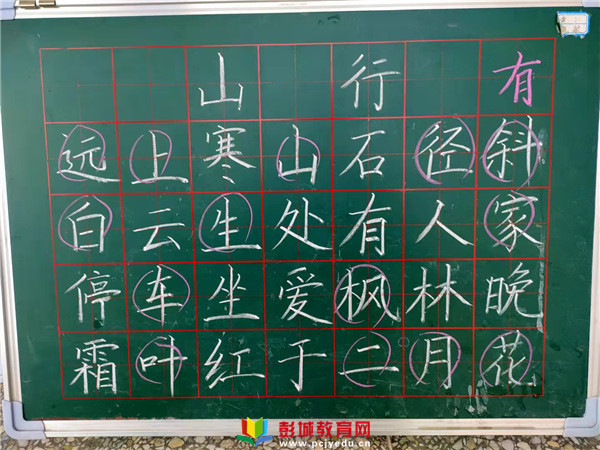 山行 有
远上寒山石径斜
白云生处有人家
停车坐爱枫林晚
霜叶红于二月花
彭城教育网
www.pcjyedu.cn